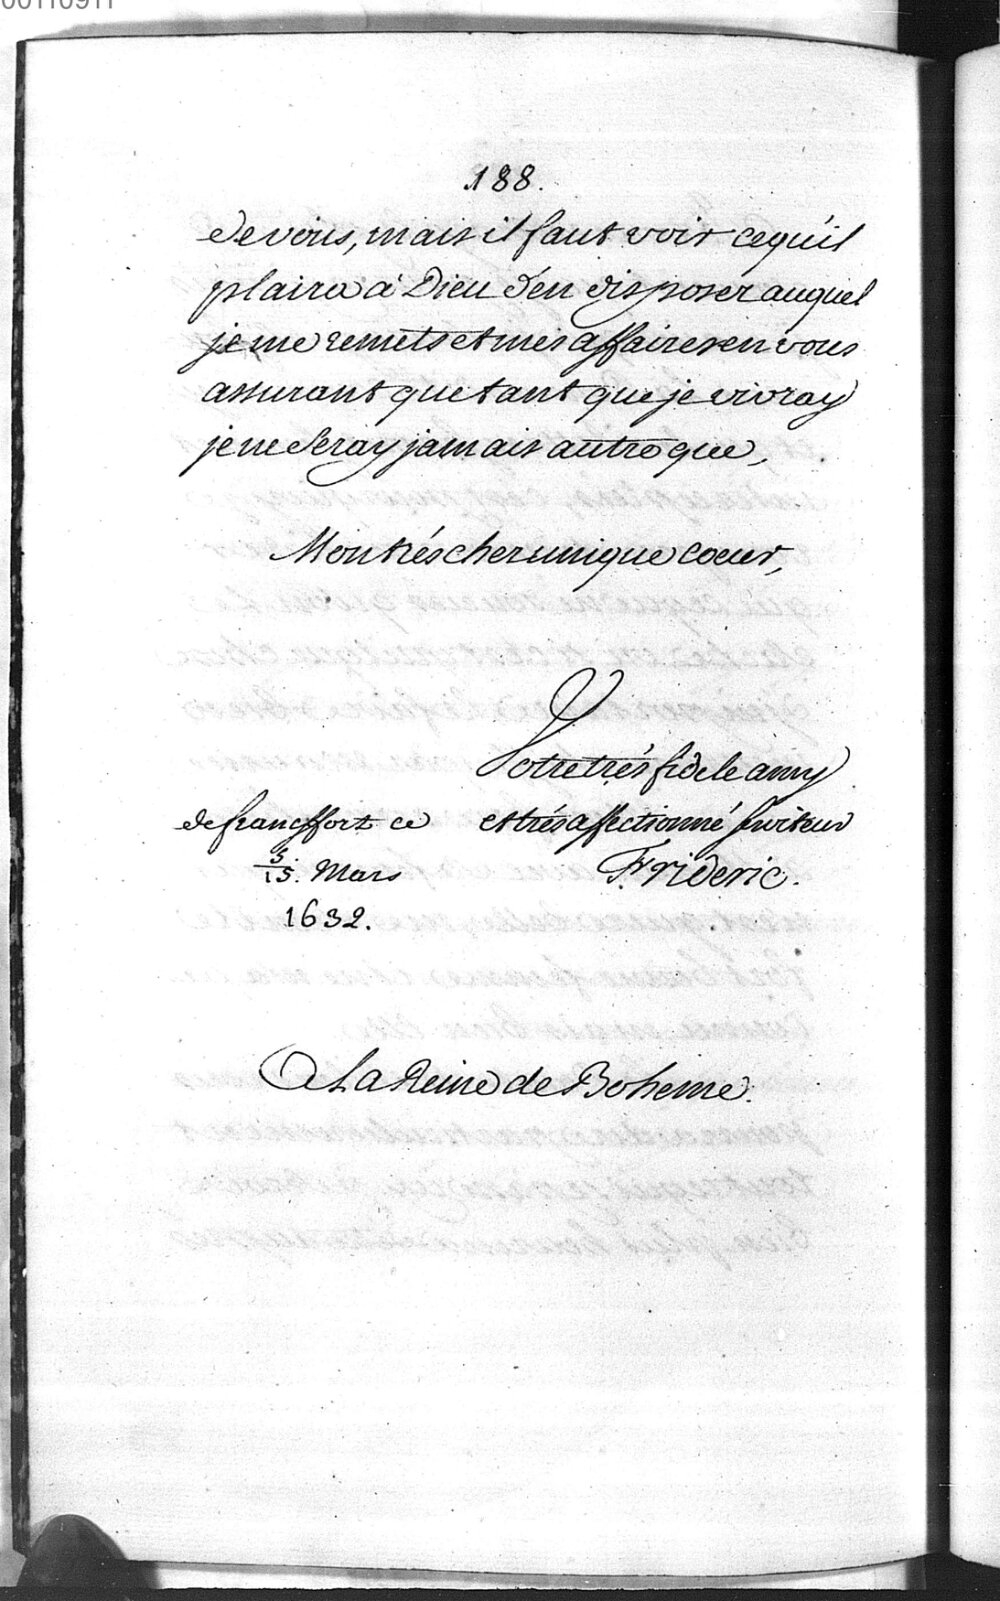 00110911
188.
de vous, mais il faut voir ce qu'il
plaira à Dieu d'en disposer auquel
je me remets et mes affaires en vous
assurant que tant que je vivray
je ne seray jamais autre que,
Mon trés cher unique coeur,
Votre trés fidele amy
de francffort ce et trés affectionné serviteur
5/15. Mars Frideric.
1632.
A La Reine de Boheme.